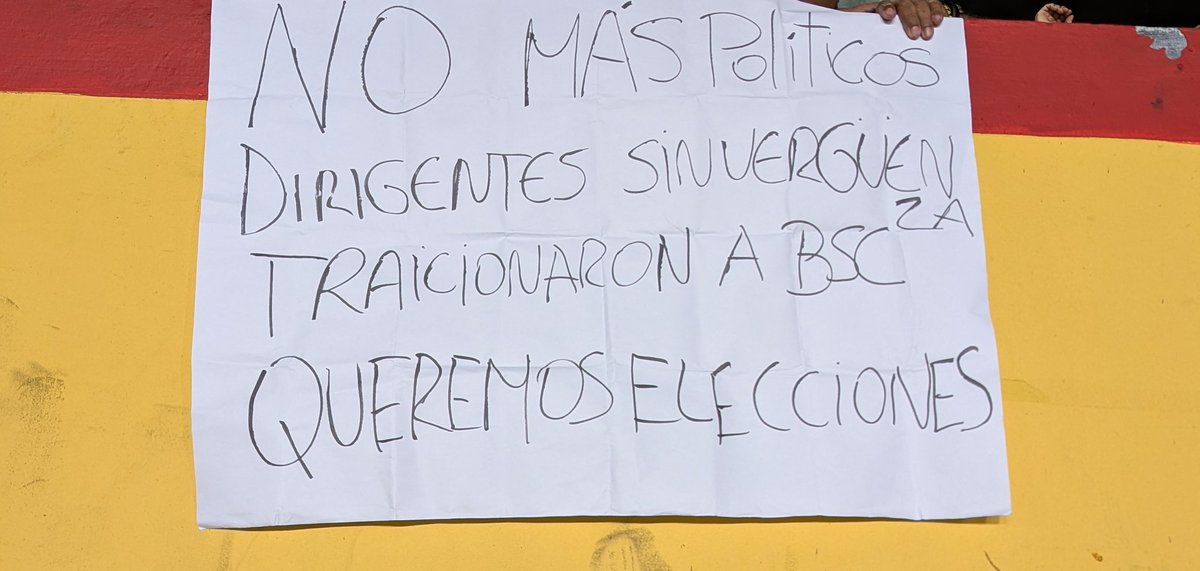 NO MÁS Políticos
DIRIGENTES SINVERGÜENZA
TRAICIONARON A BSC
QUEREMOS ELECCIONES